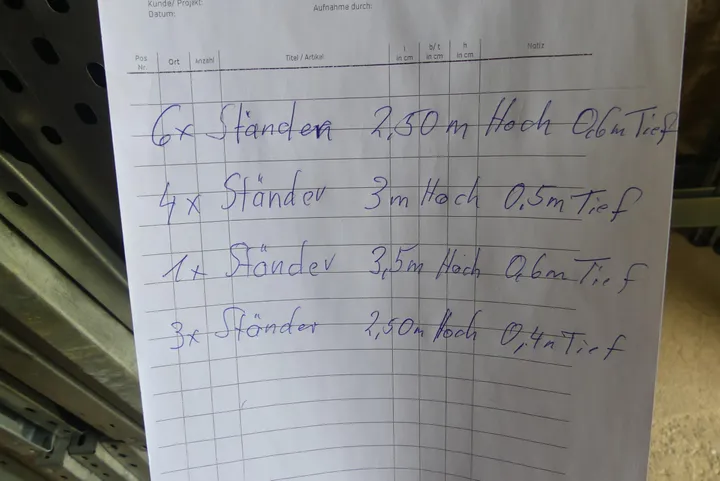 Kunde/ Projekt:
Datum:
Aufnahme durch:
Pos Nr. Ort Anzahl Titel / Artikel l in cm b/t in cm h in cm Notiz
6x Ständer 2,50 m Hoch 0,6m Tief
4x Ständer 3m Hoch 0.5m Tief
1x Ständer 3,5m Hoch 0,6m Tief
3x Ständer 2,50m Hoch 0,4m Tief